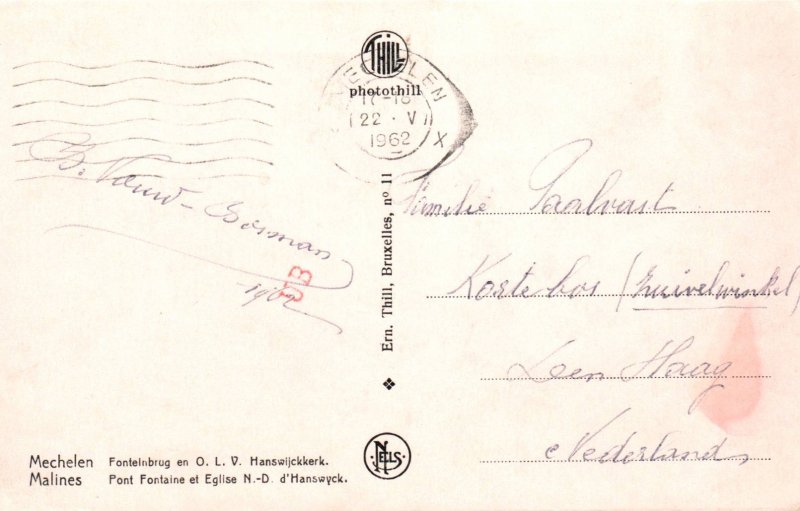 THILL
photothill
MECHELEN
17-18
22 · VI
1962
X
1962
JB
Familie
Korte bos (zuivelwinkel)
Den Haag
Nederland
Ern. Thill, Bruxelles, nº 11
NELS
Mechelen Fonteinbrug en O. L. V. Hanswijckkerk.
Malines Pont Fontaine et Eglise N.-D. d'Hanswyck.